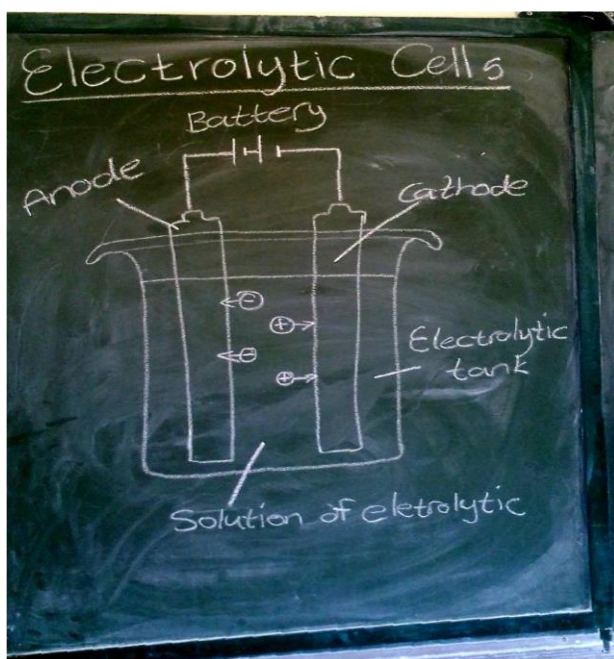 Electrolytic Cells
Battery
Anode
Cathode
Electrolytic
tank
Solution of eletrolytic